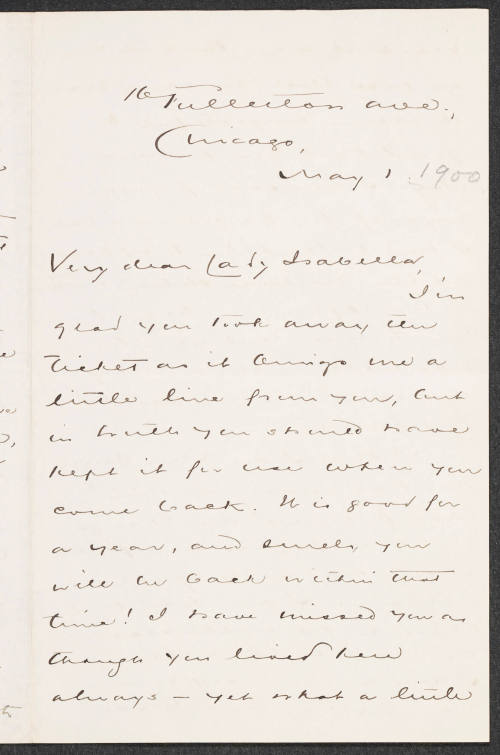 16 Fullerton ave.,
Chicago,
May 1 1900
Very dear Lady Isabella,
I'm
glad you took away the
ticket as it brings me a
little line from you, but
in truth you should have
kept it for use when you
come back. It is good for
a year, and surely you
will be back within that
time! I have missed you as
though you lived here
always — yet what a little